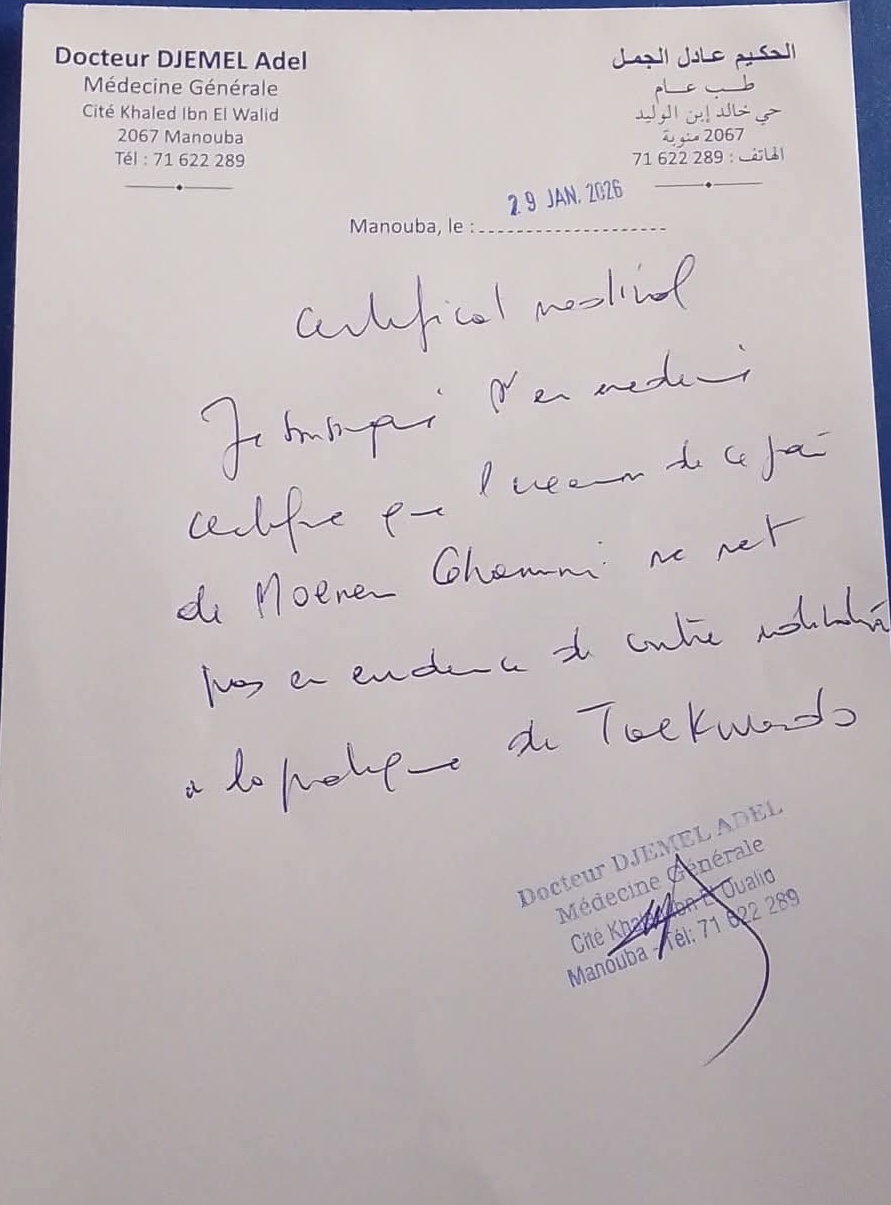 Docteur DJEMEL Adel
Médecine Générale
Cité Khaled Ibn El Walid
2067 Manouba
Tél : 71 622 289
الحكيم عادل الجمل
طب عام
حي خالد إبن الوليد
2067 منوبة
الهاتف : 71 622 289
29 JAN. 2026
Manouba, le :
Certificat médical
Je soussigné Dr en medecine
certifie que l'examen de ce jour
de Moemen Ghammi ne met
pas en evidence de contre indication
a la pratique de Taekwondo
Docteur DJEMEL ADEL
Médecine Générale
Cité Khaled Ibn El Oualid
Manouba - Tél: 71 622 289